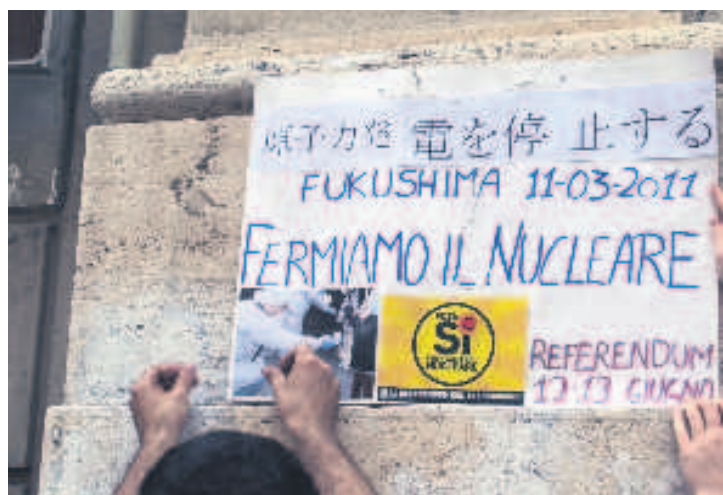 原子力発電を停止する
FUKUSHIMA 11-03-2011
FERMIAMO IL NUCLEARE
Sì
REFERENDUM
12-13 GIUGNO